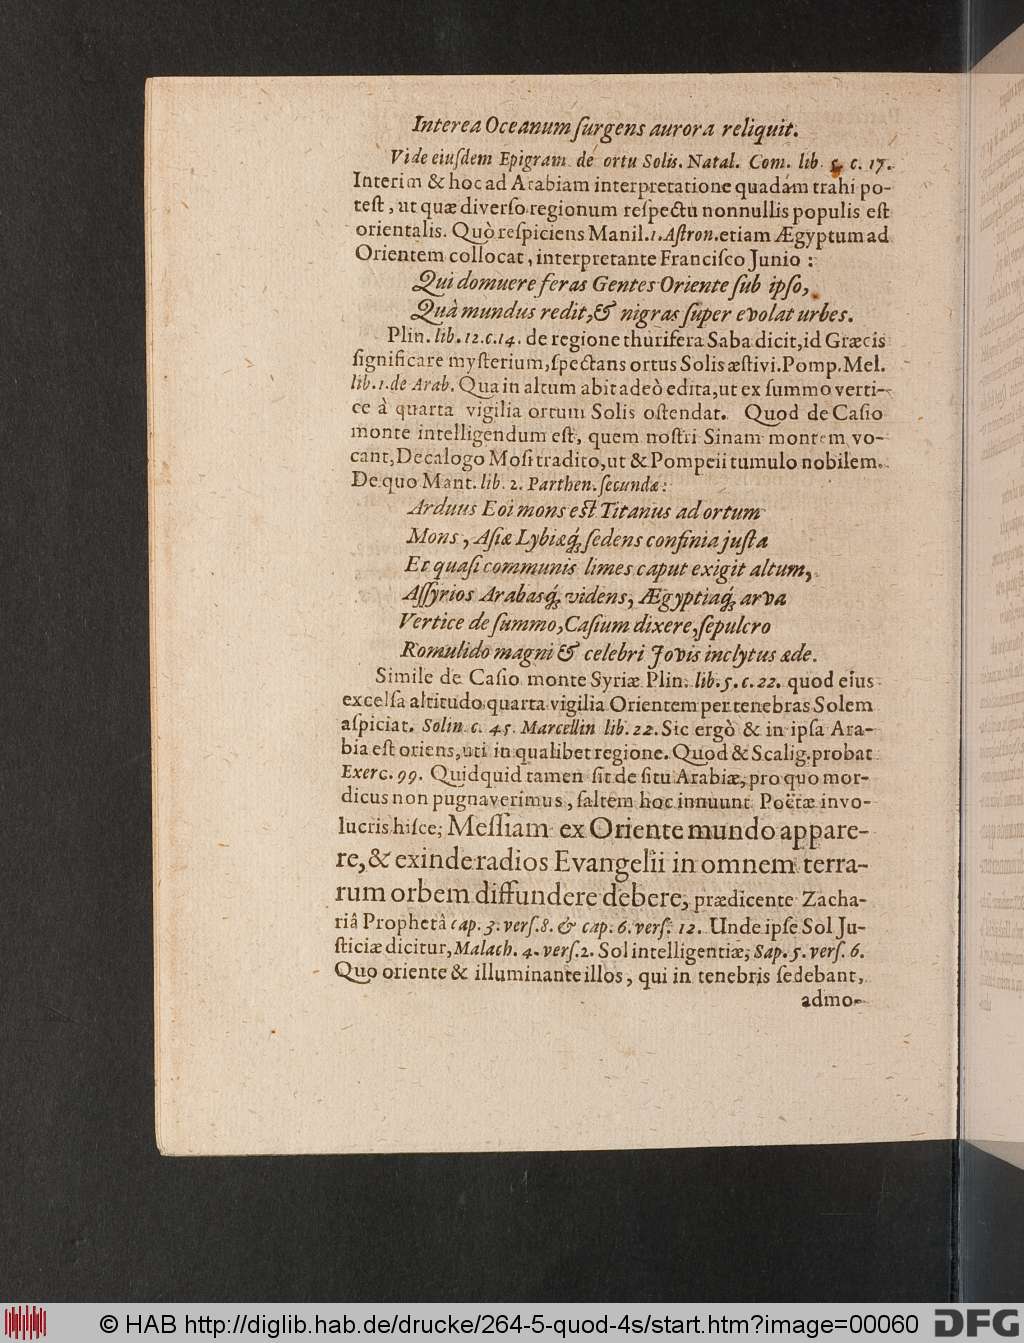 Interea Oceanum ſurgens aurora reliquit.
Vide eiuſdem Epigram. de ortu Solis. Natal. Com. lib. 5. c. 17.
Interim & hoc ad Arabiam interpretatione quadam trahi po-
teſt, ut quæ diverſo regionum reſpectu nonnullis populis eſt
orientalis. Quò reſpiciens Manil. 1. Aſtron. etiam Ægyptum ad
Orientem collocat, interpretante Franciſco Junio:
Qui domuere feras Gentes Oriente ſub ipſo,
Quà mundus redit, & nigras ſuper evolat urbes.
Plin. lib. 12. c. 14. de regione thurifera Saba dicit, id Græcis
ſignificare myſterium, ſpectans ortus Solis æſtivi. Pomp. Mel.
lib. 1. de Arab. Qua in altum abit adeò edita, ut ex ſummo verti-
ce à quarta vigilia ortum Solis oſtendat. Quod de Caſio
monte intelligendum eſt, quem noſtri Sinam montem vo-
cant, Decalogo Moſi tradito, ut & Pompeii tumulo nobilem.
De quo Mant. lib. 2. Parthen. ſecundæ:
Arduus Eoi mons eſt Titanus ad ortum
Mons, Aſiæ Lybiæq́; ſedens confinia juſta
Et quaſi communis limes caput exigit altum,
Aſſyrios Arabasq́; videns, Ægyptiaq́; arva
Vertice de ſummo, Caſium dixere, ſepulcro
Romulido magni & celebri Jovis inclytus æde.
Simile de Caſio monte Syriæ Plin. lib. 5. c. 22. quod eius
excelſa altitudo quarta vigilia Orientem per tenebras Solem
aſpiciat. Solin. c. 45. Marcellin lib. 22. Sic ergò & in ipſa Ara-
bia eſt oriens, uti in qualibet regione. Quod & Scalig. probat
Exerc. 99. Quidquid tamen ſit de ſitu Arabiæ, pro quo mor-
dicus non pugnaverimus, ſaltem hoc innuunt Poëtæ invo-
lucris hiſce; Meſſiam ex Oriente mundo appare-
re, & exinde radios Evangelii in omnem terra-
rum orbem diffundere debere, prædicente Zacha-
riâ Prophetâ cap. 3. verſ. 8. & cap. 6. verſ. 12. Unde ipſe Sol Ju-
ſticiæ dicitur, Malach. 4. verſ. 2. Sol intelligentiæ, Sap. 5. verſ. 6.
Quo oriente & illuminante illos, qui in tenebris ſedebant,
admo-
© HAB http://diglib.hab.de/drucke/264-5-quod-4s/start.htm?image=00060
DFG